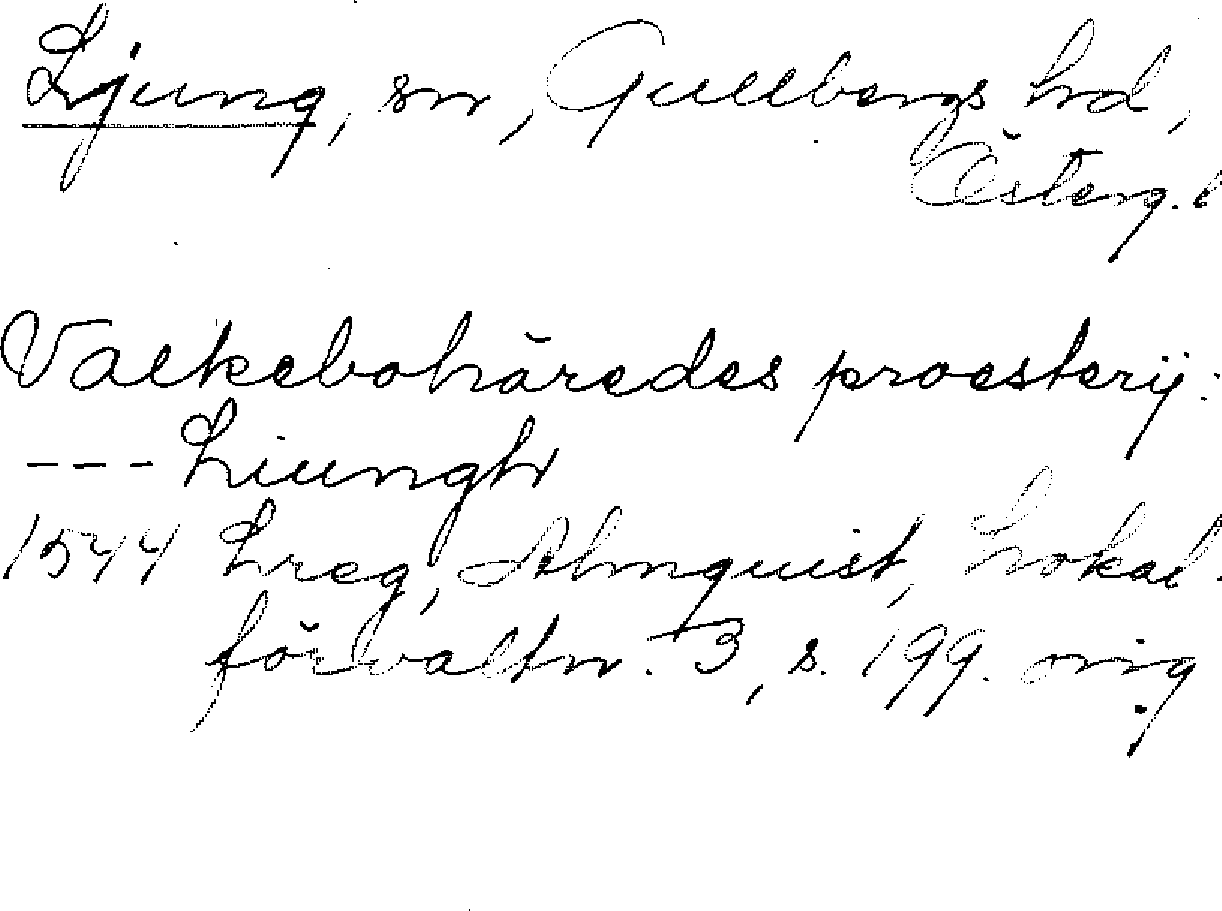 Ljung, sn, Gullbergs hd,
Österg. l
Valkebohäredes proesterij:
--- Liungh
1544 Lreg, Almquist, Lokal-
förvaltn. 3, s. 199. orig